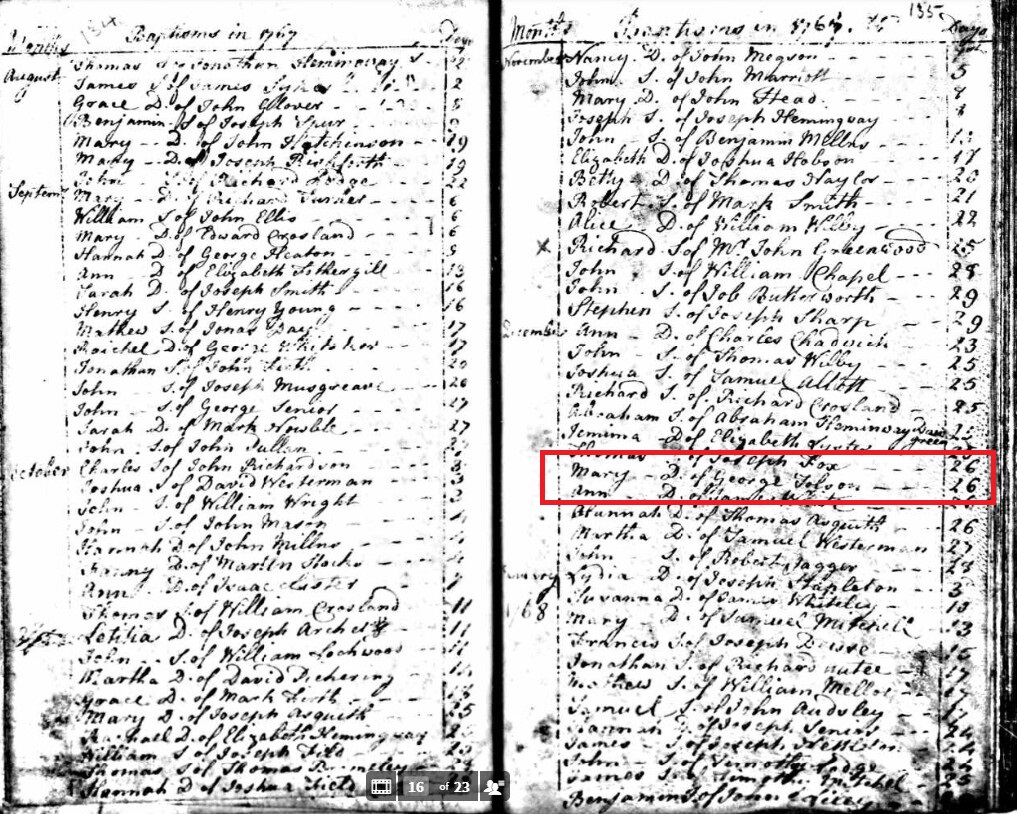 Months Baptisms in 1767 Days
August Thomas S. Jonathan Hemmoway S.
James S of James Sykes 2
Grace D. of John Glover 8
Benjamin S of Joseph Spur 9
Mary D. of John Hutchinson 19
Mary D. of Joseph 19
John S. of Richard Lodge 22
Septem Mary D. of Richard Turner 6
William S of John Ellis 6
Mary D. of Edward Crosland 6
Hannah D. of George Heaton 9
Ann D of Elizabeth Fithergill 13
Sarah D. of Joseph Smith 16
Henry S. of Henry Young 16
Mathew S. of Jonas Day 17
Raichel D. of George Whitaker 17
Jonathan S. of John Firth 20
John S. of Joseph Musgreave 26
John S. of George Senior 27
Sarah D. of Mark Howble 27
John S. of John Pullen
October Charles S of John Richardson 3
Joshua S. of David Westerman 3
John S. of William Wright
John S. of John Mason
Hannah D. of John Millns
Fanny D. of Martin Stocks
Ann D. of Isaac
Thomas S. of William Crosland 11
Letitia D. of Joseph Archer 11
John S. of William Lockwood 11
Martha D. of David Pickering
Grace D. of Mark Firth
Mary D. of Joseph Asquith 25
Rachael D. of Elizabeth Hemingway 25
William S of Joseph Field
Thomas S. of Thomas
Hannah D of Joshua Field
16 of 23
135
Months Baptisms in 1767. Days
November Nancy D. of John Megson
John S. of John Marriott 5
Mary D. of John Head
Joseph S. of Joseph Hemingway
John S. of Benjamin Mellns
Elizabeth D. of Joshua Hobson 17
Betty D. of Thomas Naylor 20
Robert S. of Mark Smith 21
Alice D. of William Wilby 22
x Richard S of Mr. John Greenwood 25
John S. of William Chapel 28
John S. of Job Butterworth 29
Stephen S. of Joseph Sharp 29
December Ann D. of Charles Chadwick 23
John S. of Thomas Wilby 25
Joshua S. of Samuel Allott 25
Richard S. of Richard Crosland 25
Abraham S. of Abraham Hemingway
Jemima D. of Elizabeth
Thomas S of Joseph Fox 26
Mary D. of George Jobson 26
Ann D. of James
Hannah D. of Thomas Asquith 26
Martha D. of Samuel Westerman 27
John S. of Robert Jagger
Lydia D. of Joseph Stapleton 3
1768 Susanna D. of James Whiteley 10
Mary D. of Samuel Mitchell 13
Francis S. of Joseph
Jonathan S. of Richard
Mathew S. of William Mellor
Samuel S. of John Audsley
Hannah D. of Joseph Senior 24
James S. of Joseph
John S. of Timothy Lodge
James S. of Timothy Mitchel 25
Benjamin S. of James